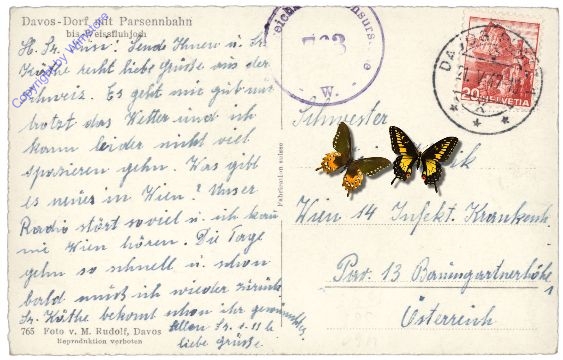 Davos-Dorf mit Parsennbahn
bis Weissfluhjoch
Copyright by Wimetere
H. Sr. Luni! Sende Ihnen u. Sr.
Käthe recht liebe Grüße aus der
Schweiz. Es geht mir gut nur
trotzt das Wetter und ich
kann leider nicht viel
spazieren gehn. Was gibt
es neues in Wien? Unser
Radio stört soviel u. ich kann
nie Wien hören. Die Tage
gehn so schnell u. schon
bald muß ich wieder zurück.
Sr. Käthe bekommt schon ihr gewünschtes.
Allen Sr.
liebe Grüße.
765 Foto v. M. Rudolf, Davos
Reproduktion verboten
Fabrication suisse
W.
DAVOS
20 HELVETIA
Schwester
Wien 14 Infekt. Krankenh
Pav. 13 Baumgartnerhöhe 1
Österreich